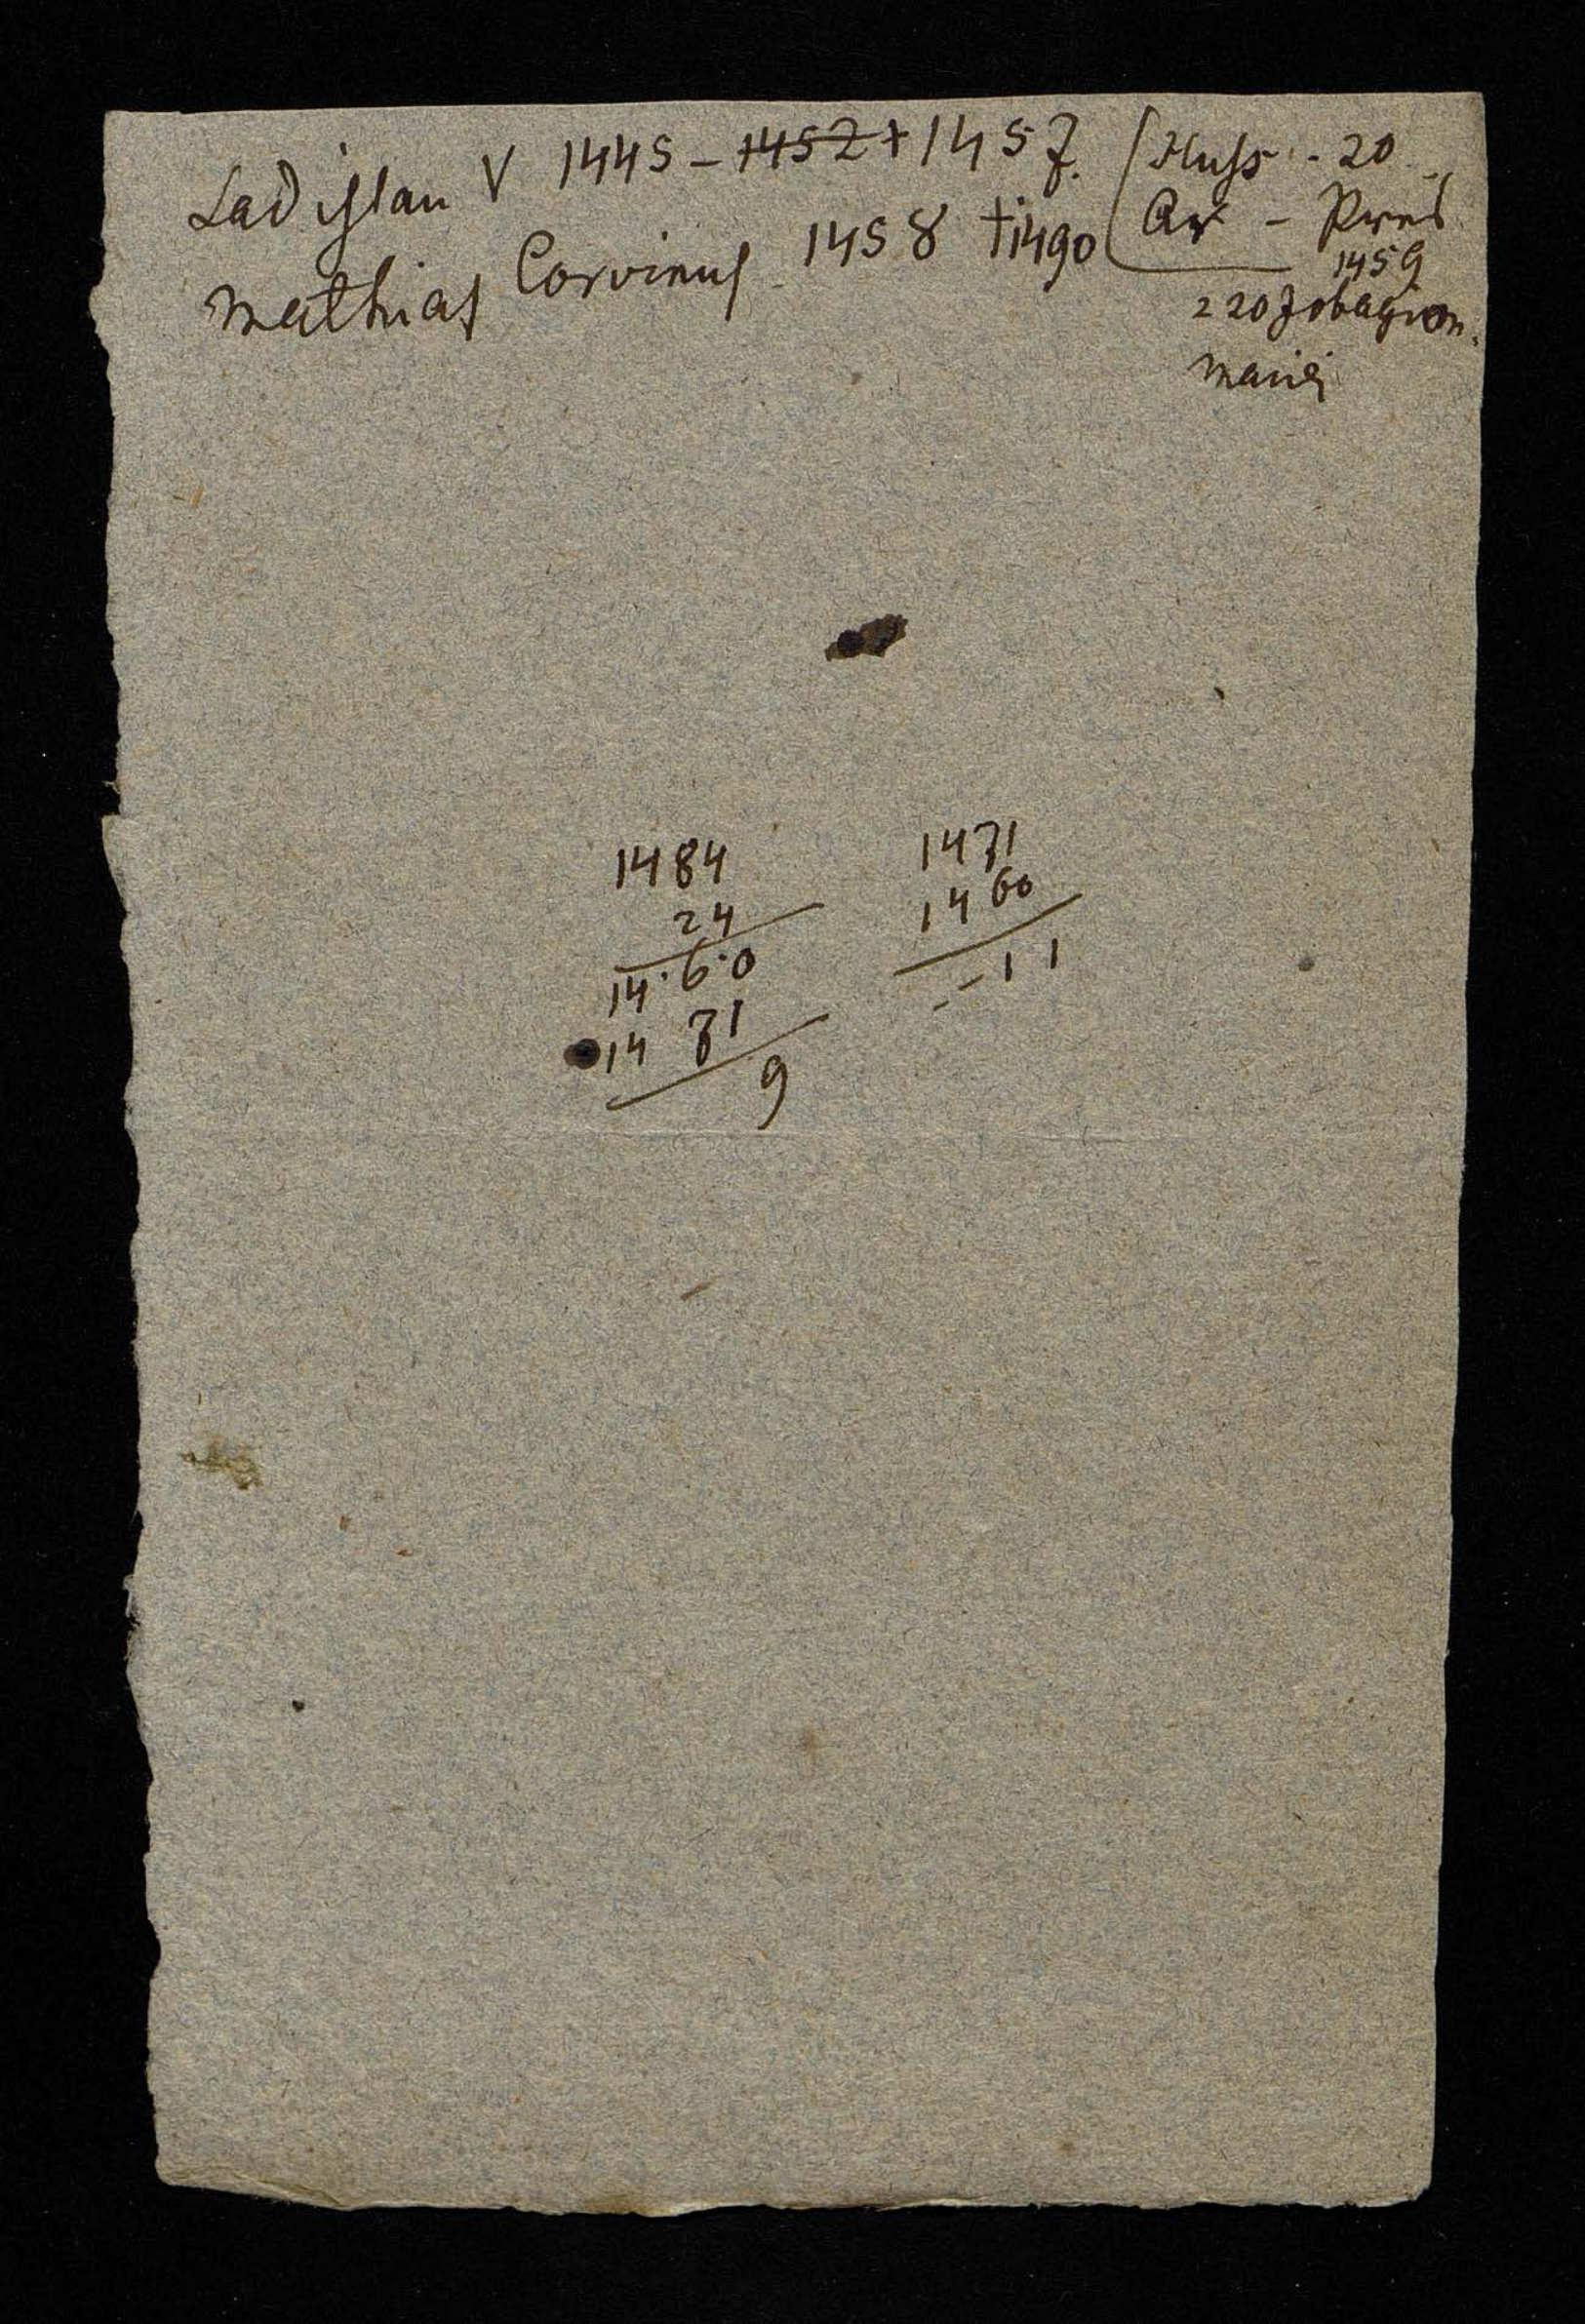 Ladislau V 1445 – 1452 + 1457.
Mathias Corvinus 1458 †1490
Huss - 20
Ar – Pres
1459
220 Jobagion.
1484
24
14·6·0
14 71
9
1471
1460
--11